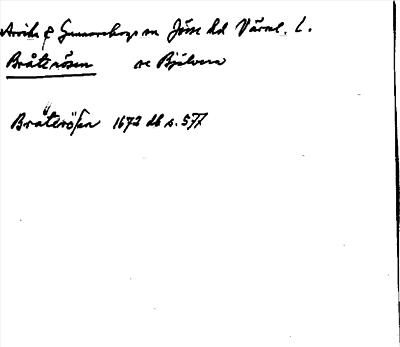 Arvika & Gunnarskogs sn Jösse hd Värml. L.
Bråterösen se Bjälvern
Bråterösen 1673 db s. 577